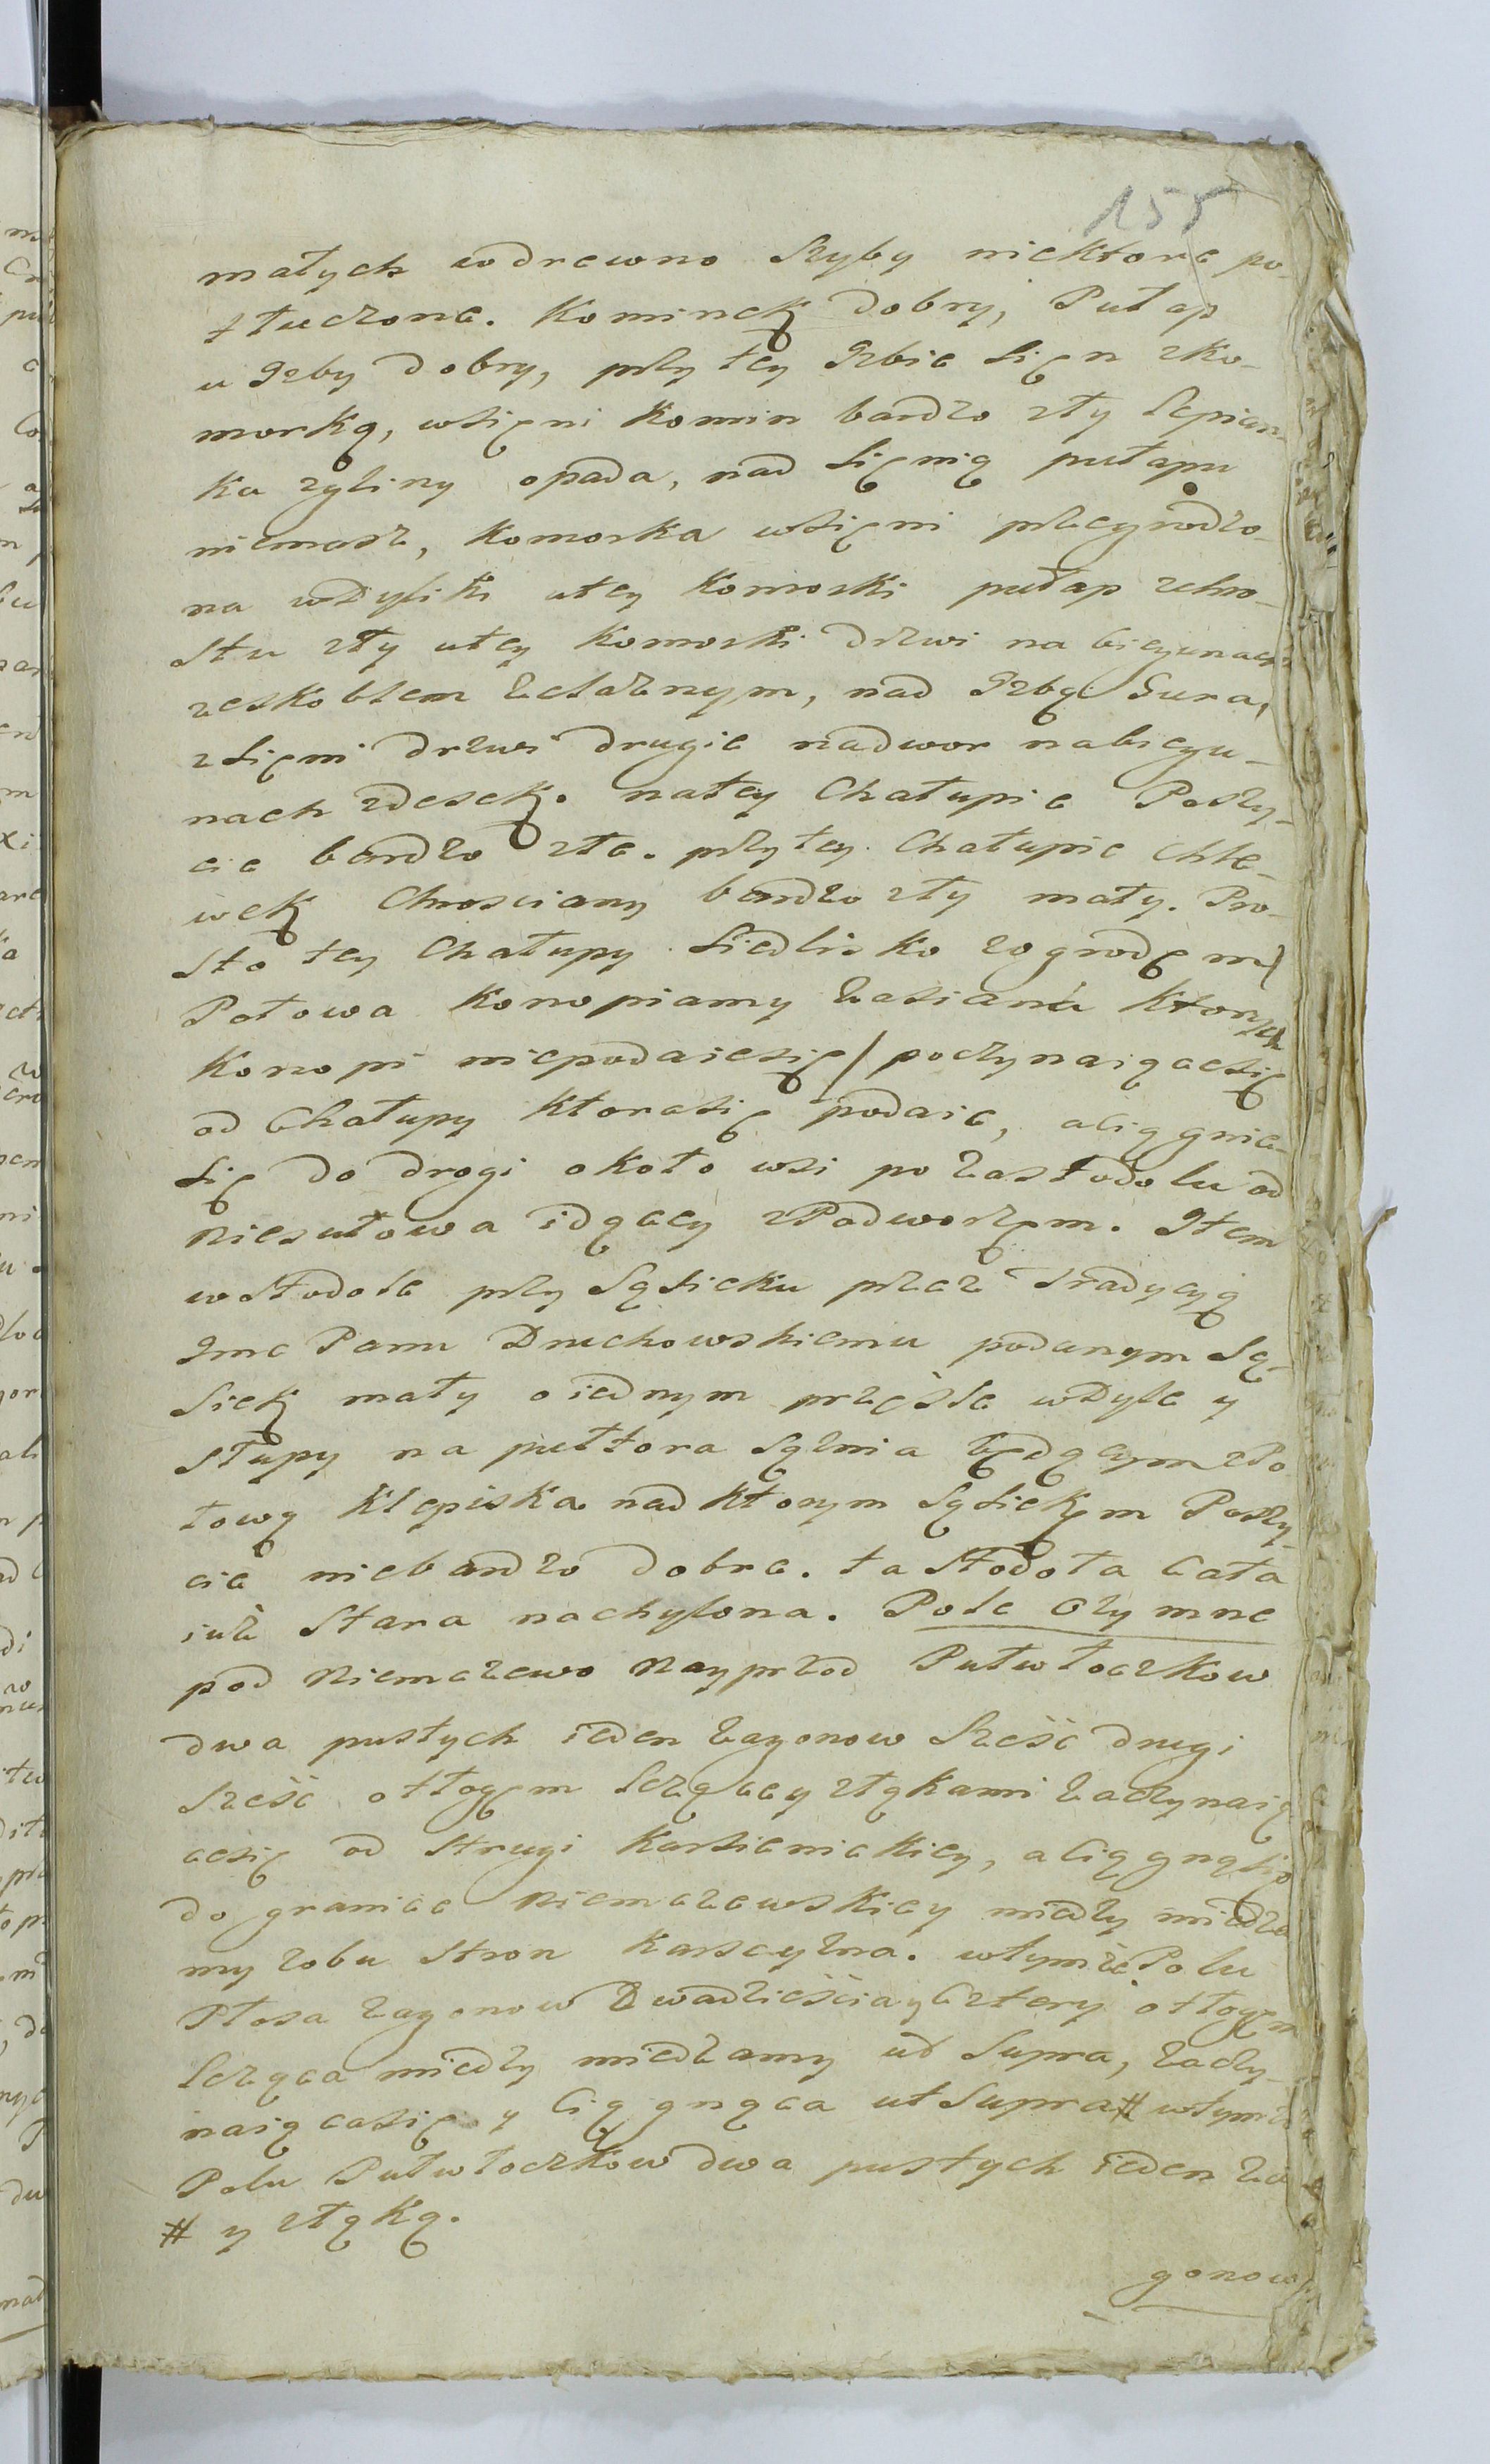 155
małych wdrewno Szyby niektore po-
tłuczone. Kominek dobry, Pułap
u Izby dobry, przy tey Izbie Sięn zko-
morką, wsięni Komin bardzo zły lepian-
ka zgliny opada, nad Sięnią pułapu
niemasz, Komorka wsięni przegrodzo-
na wdyliki utey Komorki pułap zchro-
stu zły utey Komorki drzwi na biegunach
zeskoblem żelaznym, nad Izbą Gura,
zsięni drzwi drugie nadwor nabiegu-
nach zdesek. natey Chałupie Poszy-
cie bardzo złe. przytey Chałupie Chle-
wek Chrosciany bardzo zły mały. Pro-
sto tey Chałupy Siedlisko zogrodęm/
Połowa Konopiamy zasiana ktorych
Konopi niepodaiesię/ poczynaiącesię
od Chałupy ktorasię podaie, aciągnie-
się do drogi około wsi po zastodolu od
Niesułowa idącey zPodworzęm. Item
wstodole przy Sąsieku przez Tradycyą
Imc Panu Druchowskiemu podanym Są-
siek mały oiednym przęśle wdyle y
słupy na pułtora Sążnia będącym zPo
łową Klepiska nad ktorym Sąsiekęm Poszy-
cie niebardzo dobre. ta Stodoła Cała
iuż Stara nachylona. Pole Ozymne
pod Niemczewo Nayprzod Pułwłoczkow
dwa pustych ieden Zagonow Sześć drugi
Sześć odłogęm leżący złąkami zaczynaią
cesię od Strugi Karsienickiey, aciągnąsię
do granice Niemczewskiey miedzy miedza
my zobu Stron Karscyzna. wtymże Polu
Płosa Zagonow Dwadzieścia y Cztery odłogęm
leżąca miedzy miedzamy ut Supra, zaczy-
naiącasię y Ciągnąca ut Supra # wtymże
Polu Pułwłoczkow dwa pustych ieden Za
# y złąką.
gonow